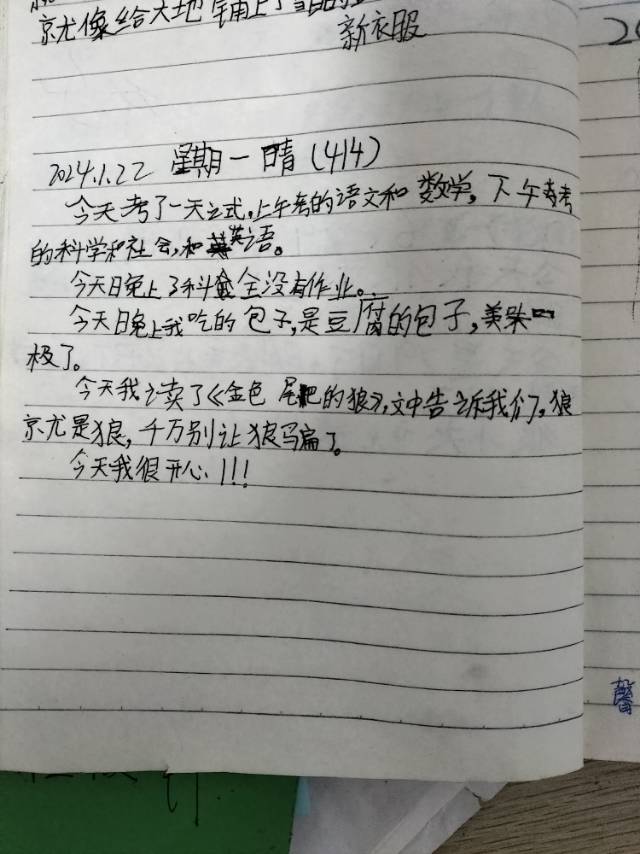 就像给大地铺上了
新衣服
2024.1.22 星期一 晴（414）
今天考了一天试，上午考的语文和数学，下午考
的科学和社会，和英语。
今天晚上了科全没有作业。
今天晚上我吃的包子，是豆腐的包子，美味
极了。
今天我读了《金色尾把的狼》，文中告诉我们，狼
就是狼，千万别让狼骗了。
今天我很开心！！！
20
馨